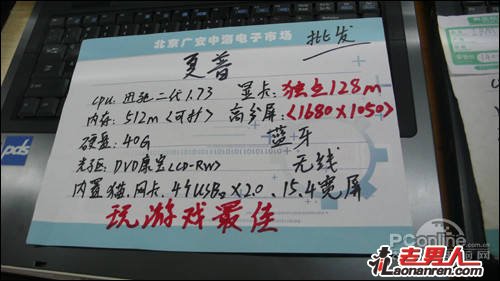 北京广安中海电子市场
批发
夏普
CPU: 迅驰二代1.73 显卡:独立128m
内存: 512m<可扩> 高分屏:<1680X1050>
硬盘: 40G 蓝牙
光驱: DVD康宝(CD-RW> 无线
内置猫、网卡、4个USB。X2.0、15.4宽屏
玩游戏最佳
pds
PConline
老男人
Laonanren.com